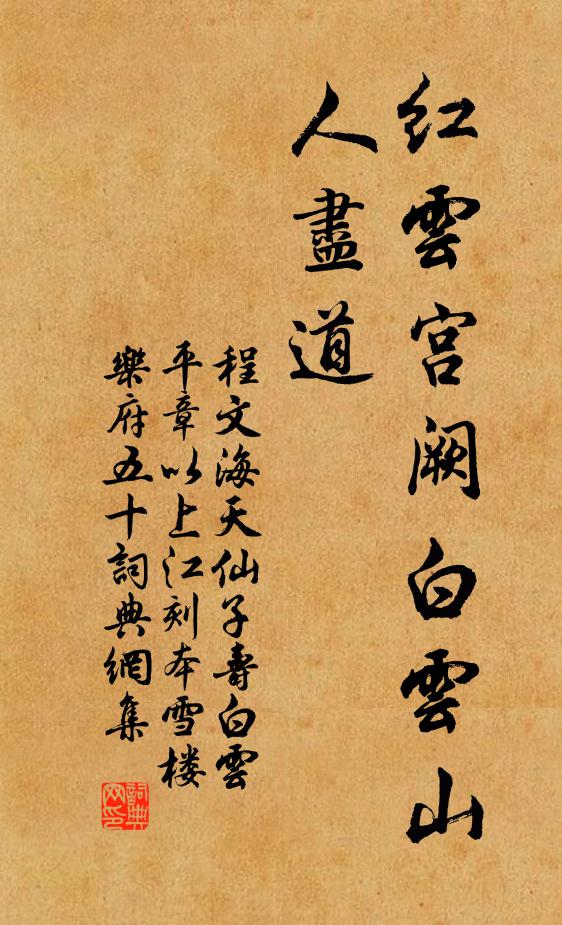 红雲宫阙白雲山
人盡道
程文海天仙子壽白雲
平章以上江刻本雪楼
樂府五十詞典網集
詞典
网印